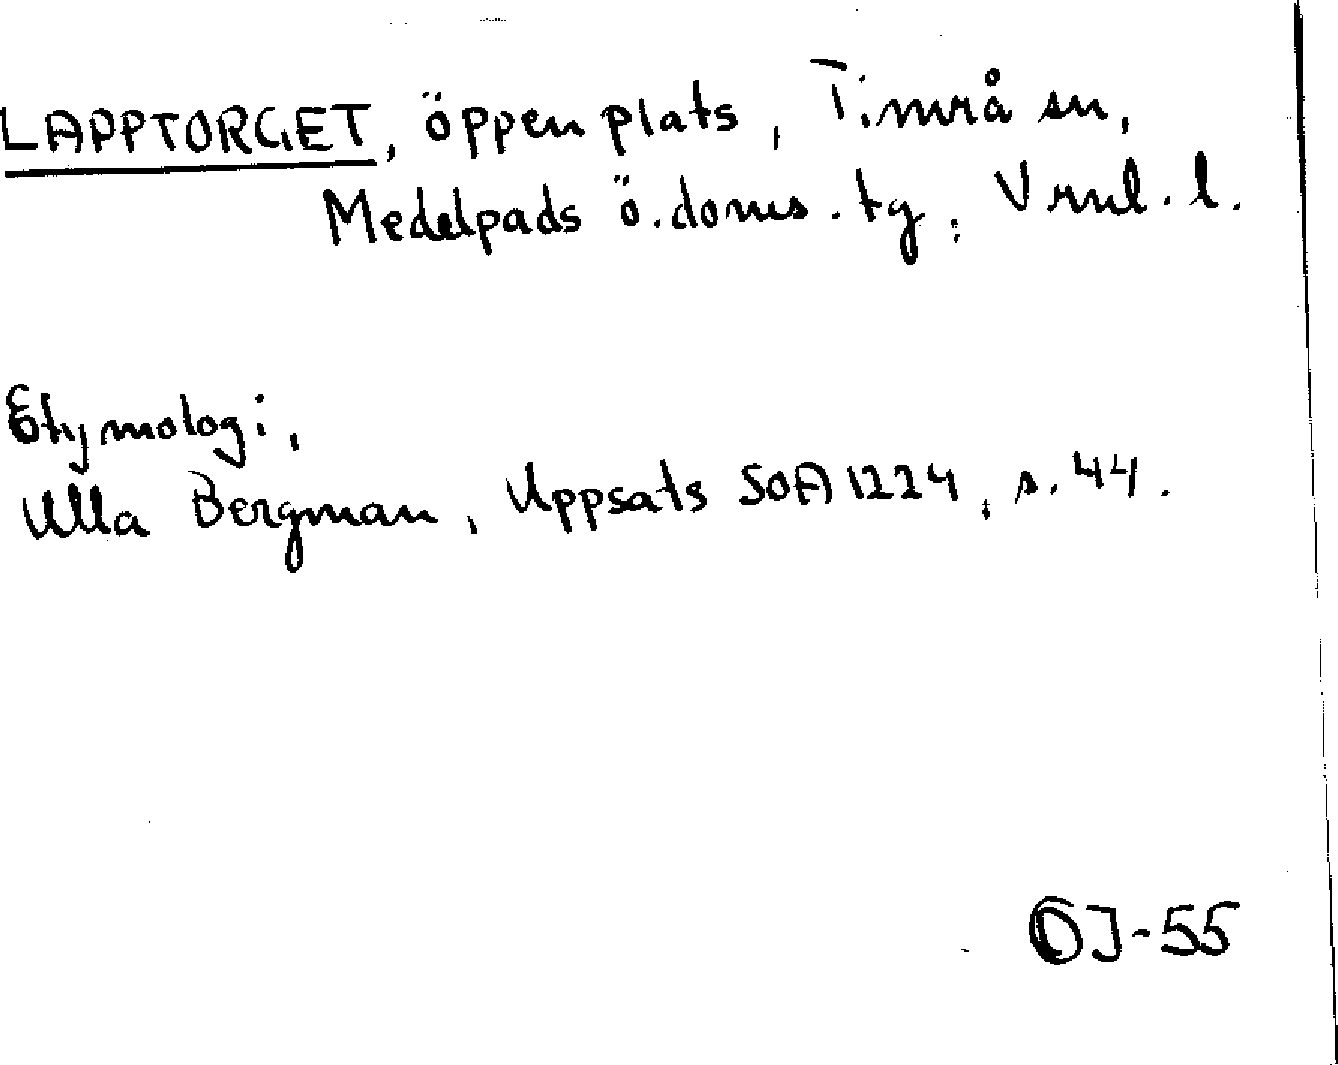 LAPPTORGET, öppen plats, Timrå sn,
Medelpads ö. doms. tg, Vrnl. l.
Etymologi,
Ulla Bergman, Uppsats SOA 1224, s. 44.
DJ-55